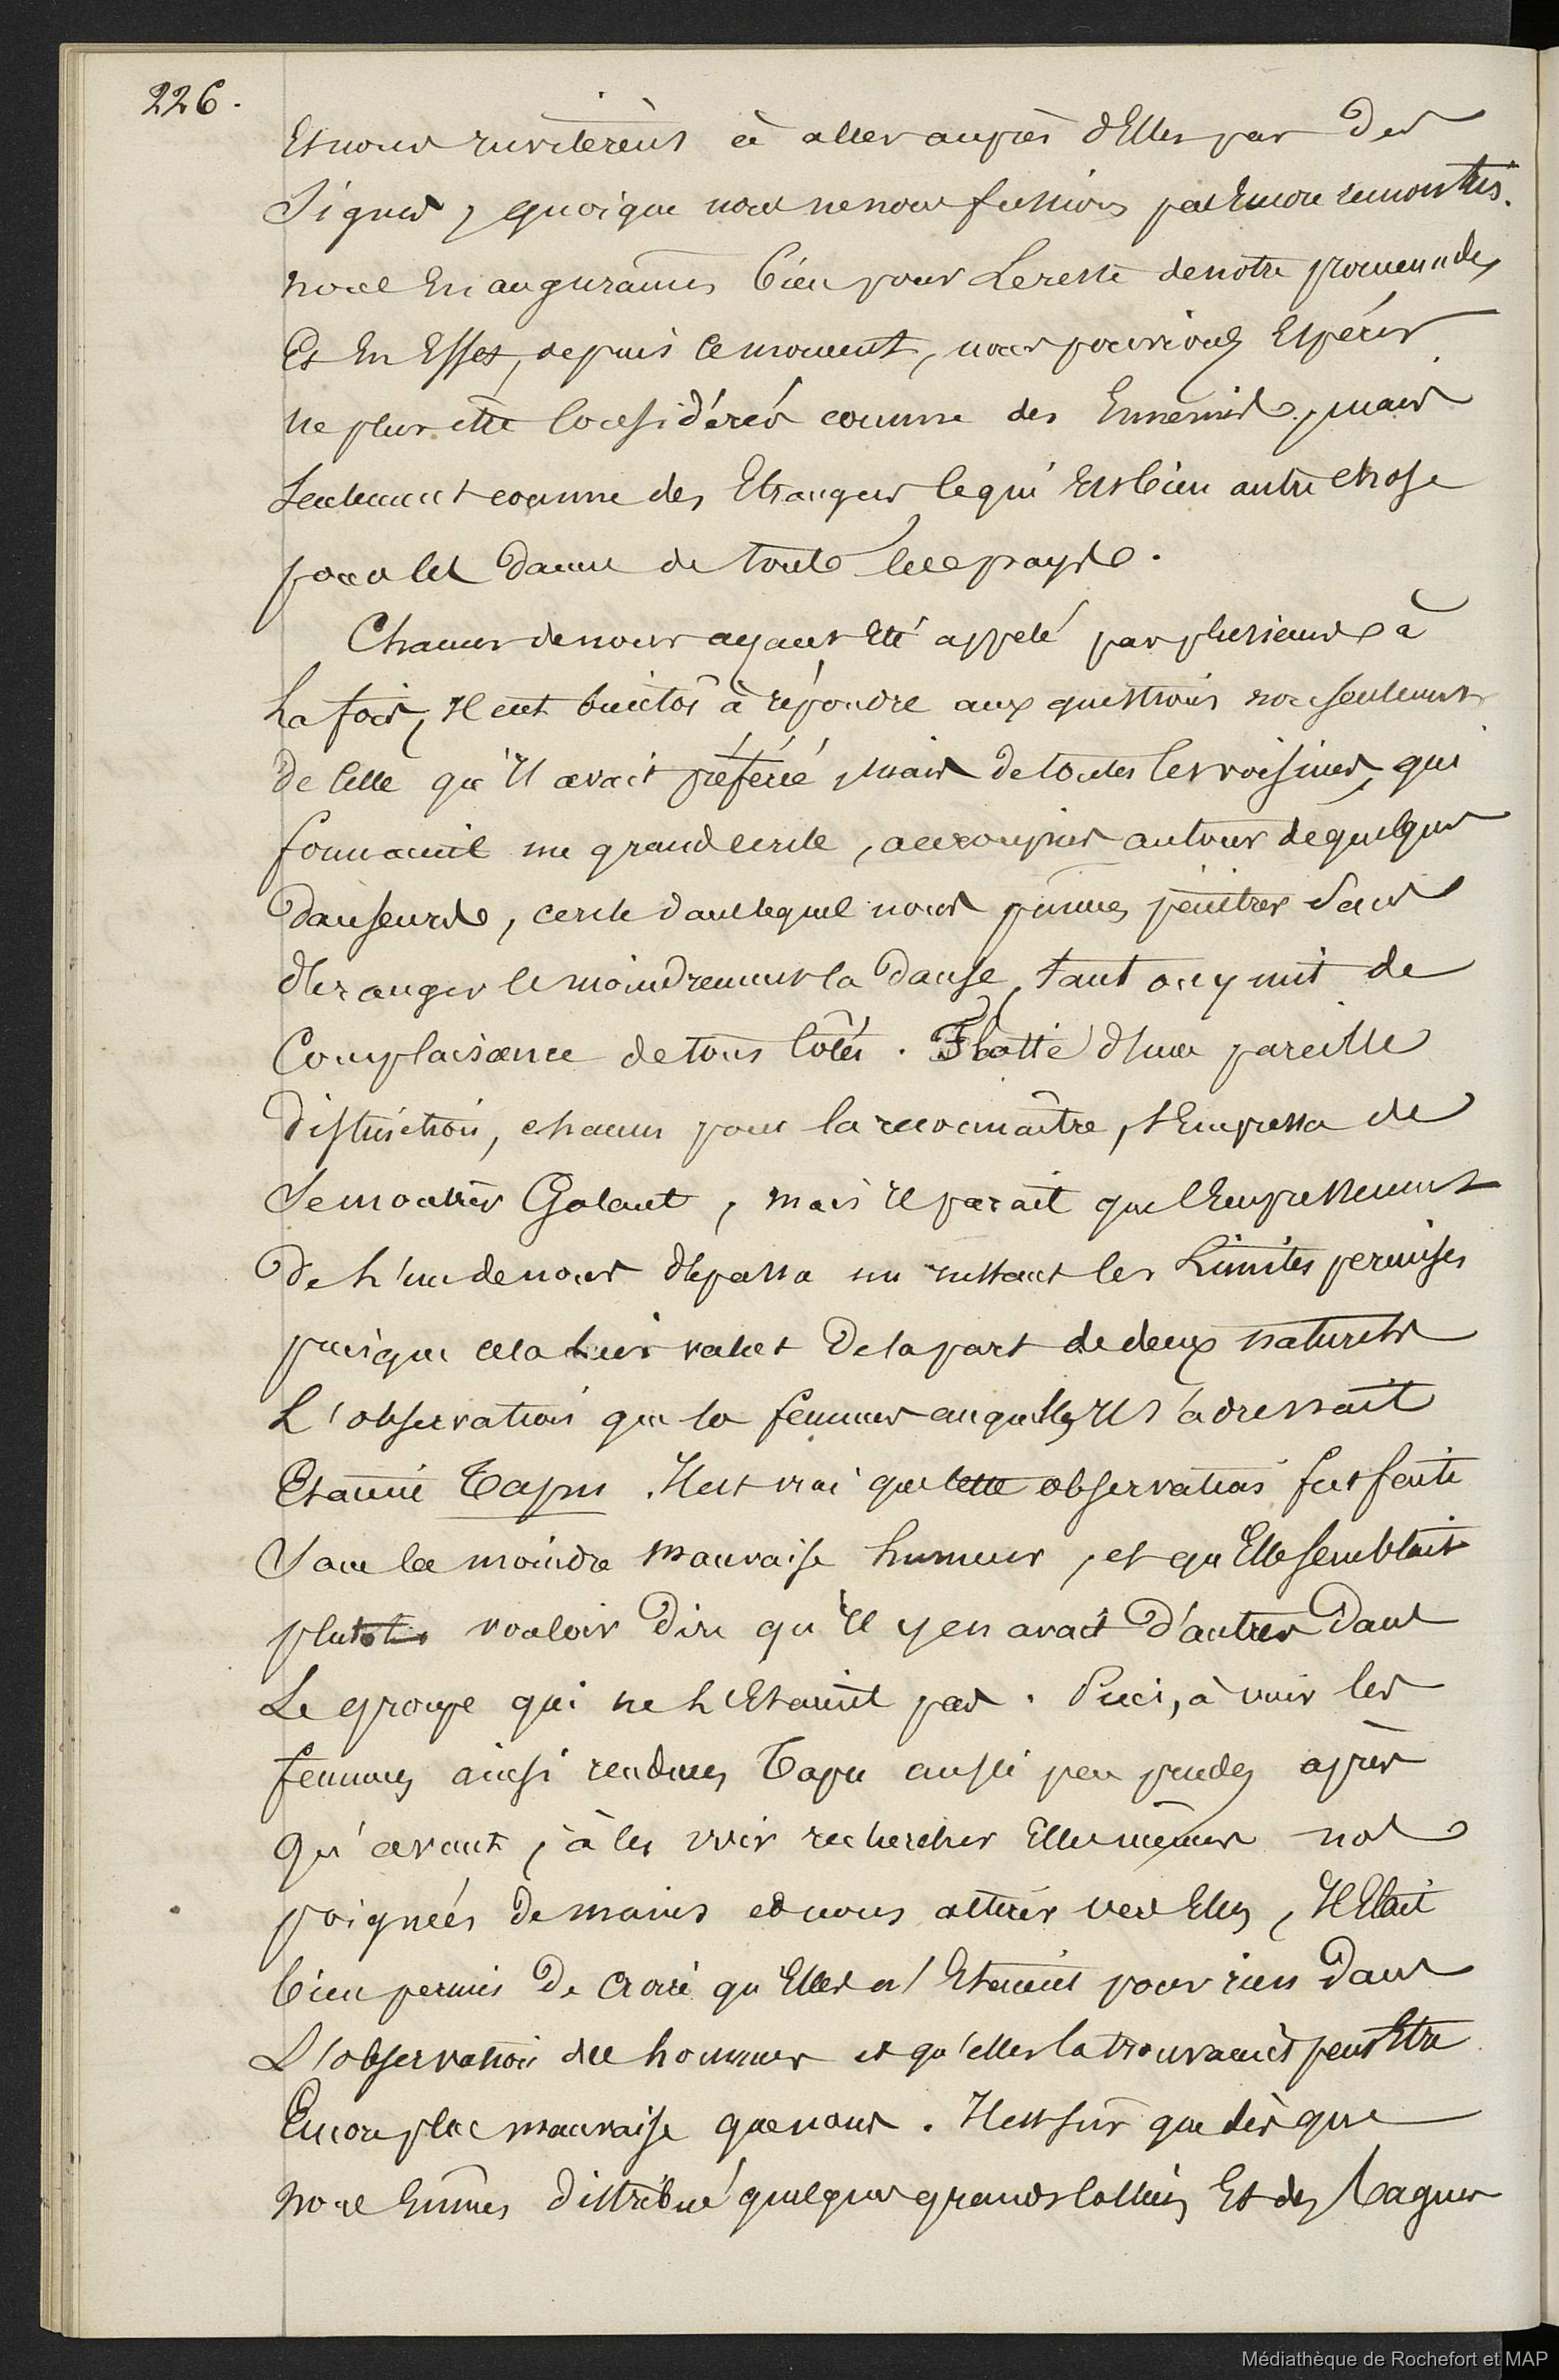 226.
Et nous invitèrent à aller auprès d'Elles par des
Signes, quoique nous ne nous fussions pas Encore remontrés.
nous En augurames bien pour Le reste de notre promenade,
Et En Effet, depuis ce moment, nous pouvions Espérer
ne plus être considérés comme des Ennemis, mais
Seulement comme des Etrangers ce qui Est bien autre chose
pour les Dames de touts les pays.
Chacun de nous ayant Eté appelé par plusieurs à
La fois, Il eut bientôt à répondre aux questions non seulement
de Celle qu'Il avait préféré, mais de toutes les voisines, qui
formaient un grand cercle, accroupies autour de quelques
Danseurs, cercle dans lequel nous pûmes pénétrer Sans
déranger le moindrement la Danse, tant on y mit de
Complaisance de tous côtés. Flatté d'une pareille
distinction, chacun pour la reconnaître, s'Empressa de
Se montrer Galant, mais Il parait que l'Empressement
de L'un de nous dépassa un instant les Limites permises
puisque cela lui valut De la part de deux naturels
L'observation que la femmes auquelles Il s'adressait
Etaient Tapu. Il est vrai que cette observation fut faite
Sans la moindre mauvaise humeur, et qu'Elle semblait
plutôt vouloir Dire qu'Il y en avait D'autres Dans
Le groupe qui ne L'Etaient pas. Puis, à voir les
femmes ainsi rendues Tapu aussi peu prudes après
qu'avant, à les voir rechercher Elles mêmes nos
poignées De mains et nous attirer vers Elles, Il Etait
bien permis De Croire qu'Elles n'Etaient pour rien Dans
L'observation des hommes et qu'elles la trouvaient peut Etre
Encore plus mauvaise que nous. Il est sûr que dès que
nous Eûmes distribué quelques grands colliers Et des bagues
Médiathèque de Rochefort et MAP